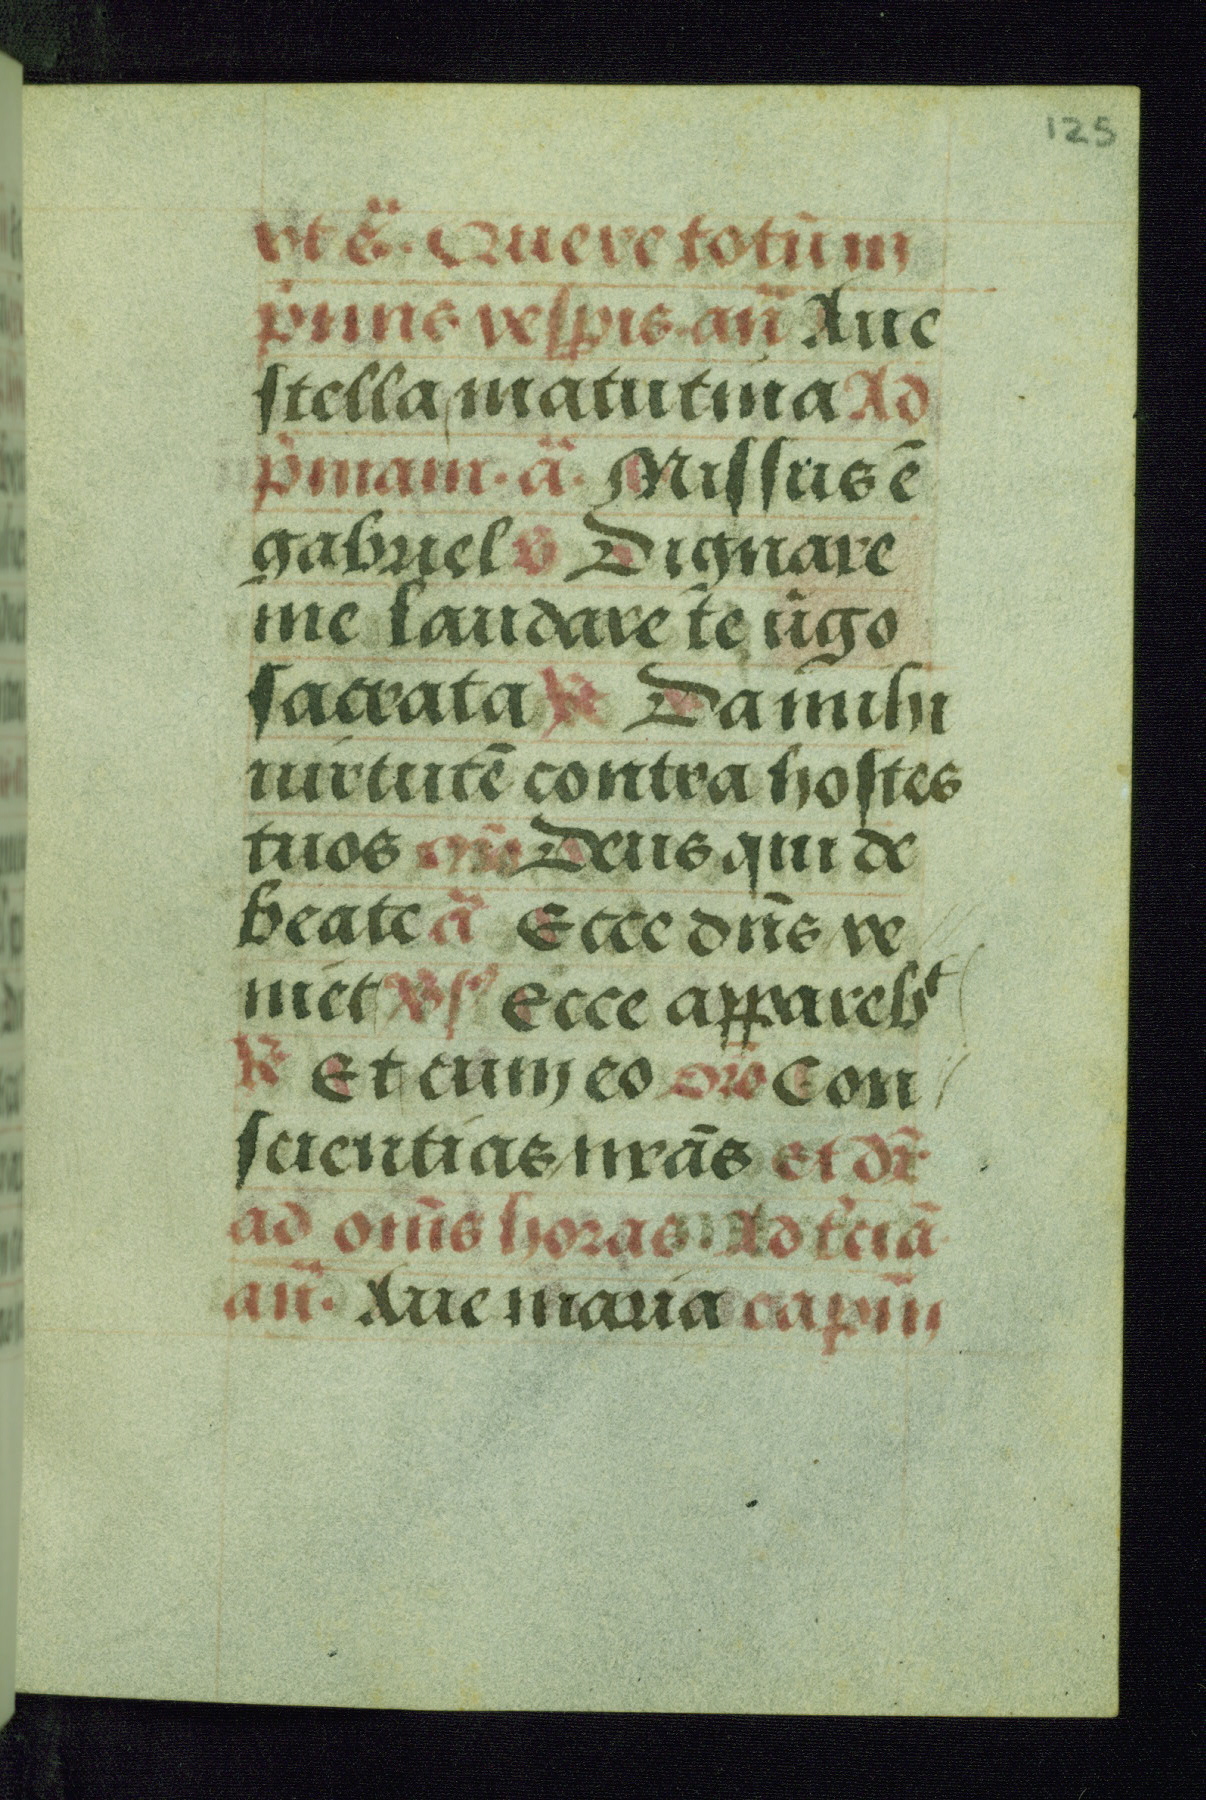 125
vt ẽ. Quere totũ in
p̃mis vesp̃is. añ Aue
stella matutina Ad
p̃mam. ã. Missus ẽ
gabriel v̄ Dignare
me laudare te ũgo
sacrata R̃ Da mihi
uirtutẽ contra hostes
tuos orõ Deus qui de
beate ã Ecce dñs ve
niet Vsꝰ Ecce appareb̄t
R̃ Et cum eo orõ Con
scientias nrãs et dr̃
ad om̃s horas. Ad t̃ciã
añ. Aue maria capm̃